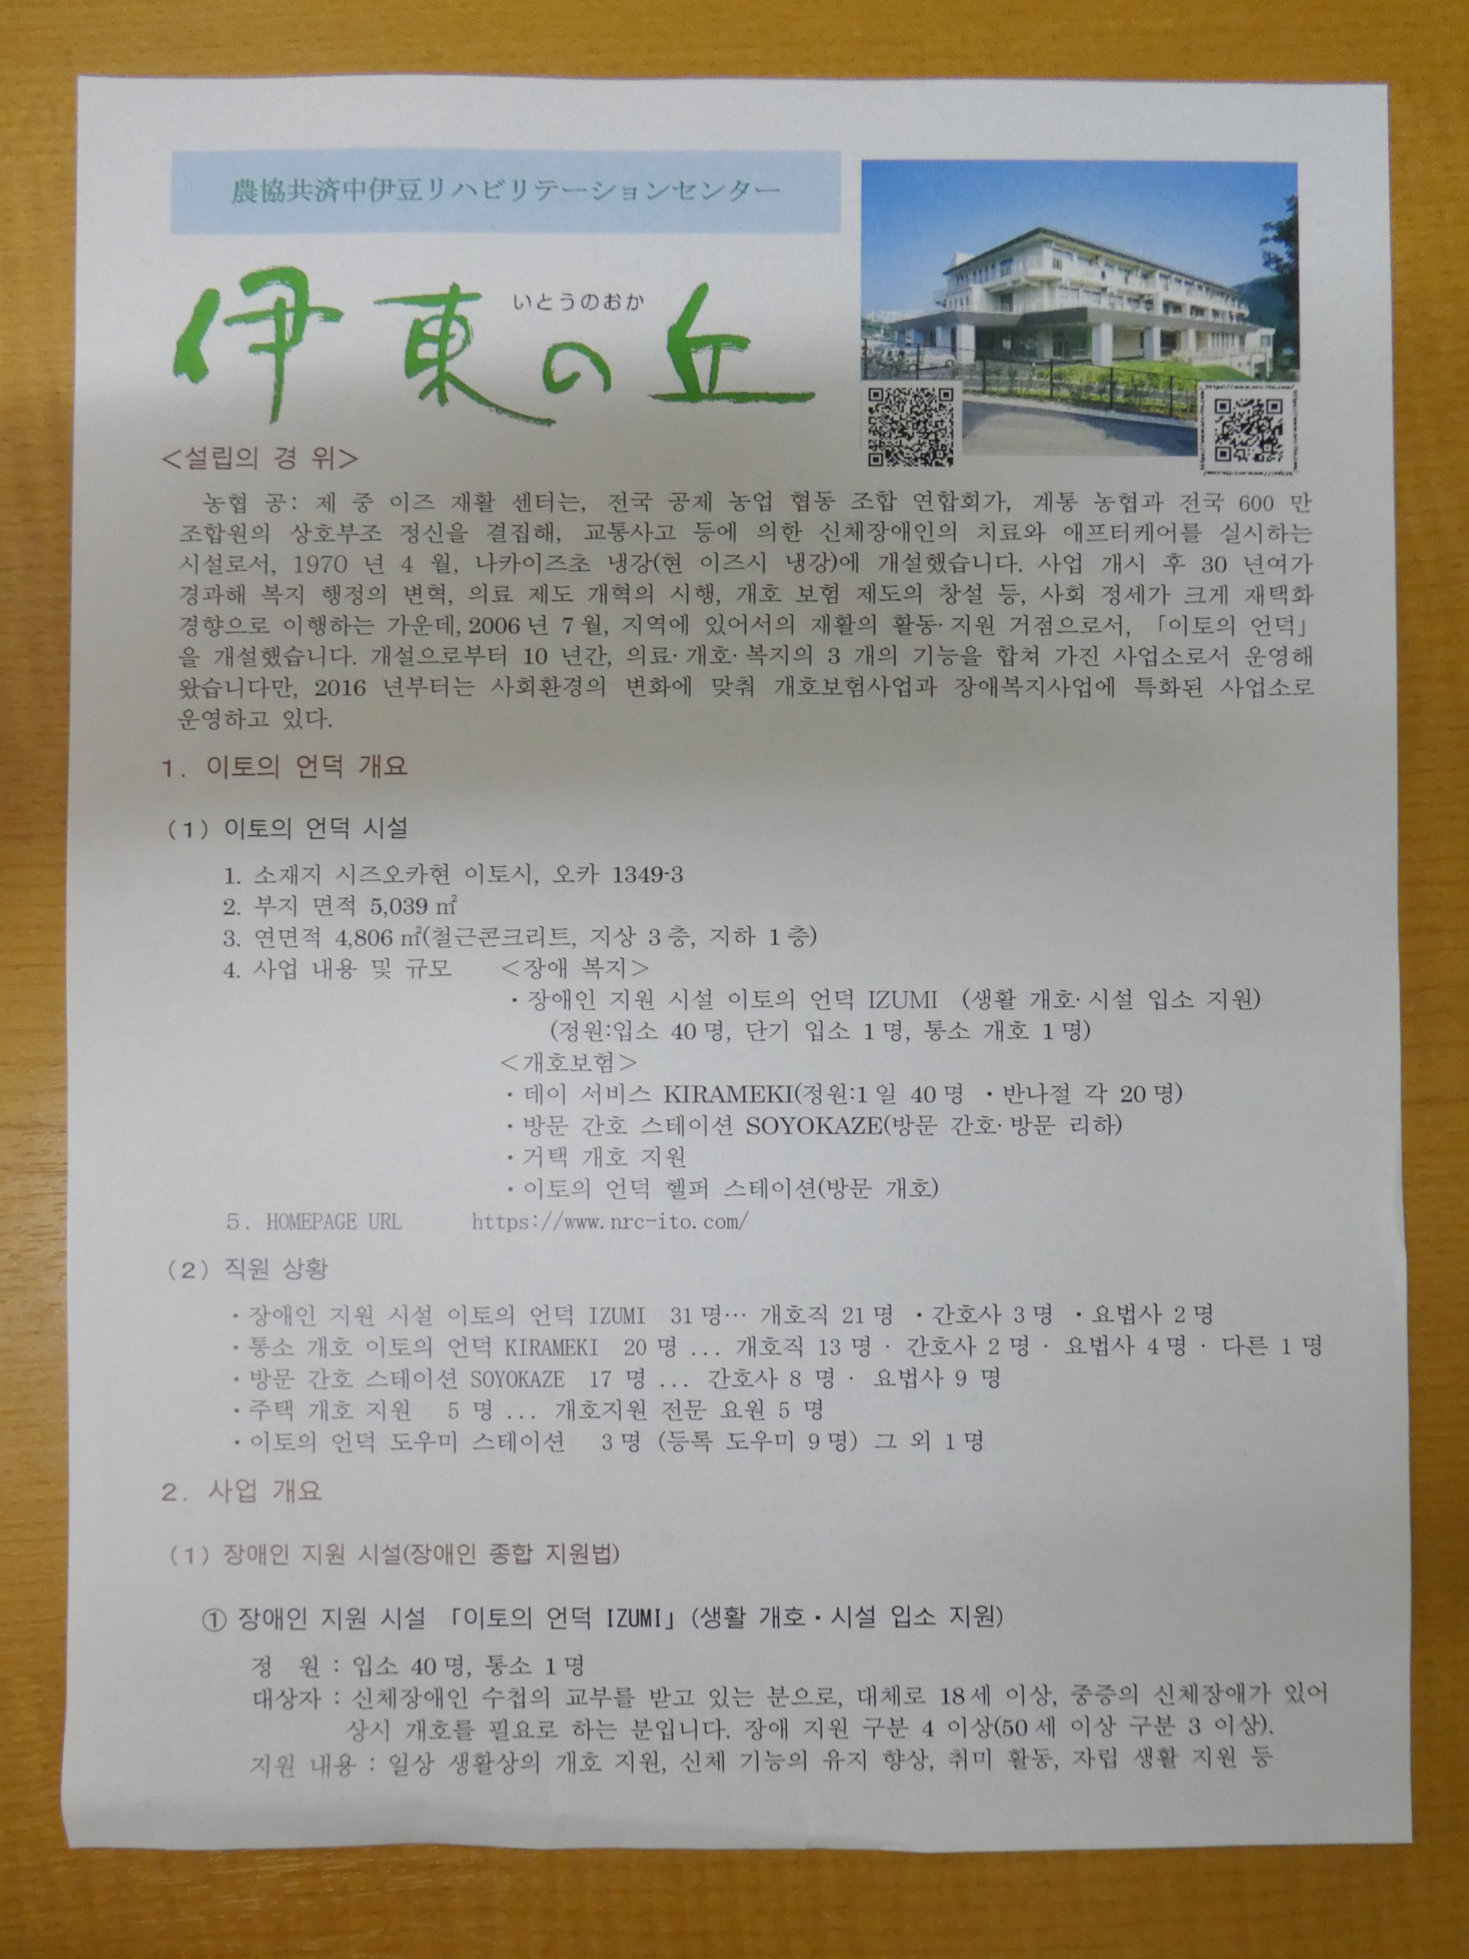 農協共済中伊豆リハビリテーションセンター
いとうのおか
伊東の丘
<설립의 경 위>
농협 공: 제 중 이즈 재활 센터는, 전국 공제 농업 협동 조합 연합회가, 계통 농협과 전국 600 만
조합원의 상호부조 정신을 결집해, 교통사고 등에 의한 신체장애인의 치료와 애프터케어를 실시하는
시설로서, 1970 년 4 월, 나카이즈초 냉강(현 이즈시 냉강)에 개설했습니다. 사업 개시 후 30 년여가
경과해 복지 행정의 변혁, 의료 제도 개혁의 시행, 개호 보험 제도의 창설 등, 사회 정세가 크게 재택화
경향으로 이행하는 가운데, 2006 년 7 월, 지역에 있어서의 재활의 활동·지원 거점으로서, 「이토의 언덕」
을 개설했습니다. 개설으로부터 10 년간, 의료·개호·복지의 3 개의 기능을 합쳐 가진 사업소로서 운영해
왔습니다만, 2016 년부터는 사회환경의 변화에 맞춰 개호보험사업과 장애복지사업에 특화된 사업소로
운영하고 있다.
1. 이토의 언덕 개요
(1) 이토의 언덕 시설
1. 소재지 시즈오카현 이토시, 오카 1349-3
2. 부지 면적 5,039 ㎡
3. 연면적 4,806 ㎡(철근콘크리트, 지상 3 층, 지하 1 층)
4. 사업 내용 및 규모 <장애 복지>
・장애인 지원 시설 이토의 언덕 IZUMI (생활 개호·시설 입소 지원)
(정원:입소 40 명, 단기 입소 1 명, 통소 개호 1 명)
<개호보험>
・데이 서비스 KIRAMEKI(정원:1 일 40 명 ・반나절 각 20 명)
・방문 간호 스테이션 SOYOKAZE(방문 간호·방문 리하)
・거택 개호 지원
・이토의 언덕 헬퍼 스테이션(방문 개호)
5. HOMEPAGE URL https://www.nrc-ito.com/
(2) 직원 상황
・장애인 지원 시설 이토의 언덕 IZUMI 31 명… 개호직 21 명 ・간호사 3 명 ・요법사 2 명
・통소 개호 이토의 언덕 KIRAMEKI 20 명 ... 개호직 13 명 · 간호사 2 명 · 요법사 4 명 · 다른 1 명
・방문 간호 스테이션 SOYOKAZE 17 명 ... 간호사 8 명 · 요법사 9 명
・주택 개호 지원 5 명 ... 개호지원 전문 요원 5 명
・이토의 언덕 도우미 스테이션 3 명 (등록 도우미 9 명) 그 외 1 명
2. 사업 개요
(1) 장애인 지원 시설(장애인 종합 지원법)
① 장애인 지원 시설 「이토의 언덕 IZUMI」(생활 개호・시설 입소 지원)
정 원 : 입소 40 명, 통소 1 명
대상자 : 신체장애인 수첩의 교부를 받고 있는 분으로, 대체로 18 세 이상, 중증의 신체장애가 있어
상시 개호를 필요로 하는 분입니다. 장애 지원 구분 4 이상(50 세 이상 구분 3 이상).
지원 내용 : 일상 생활상의 개호 지원, 신체 기능의 유지 향상, 취미 활동, 자립 생활 지원 등